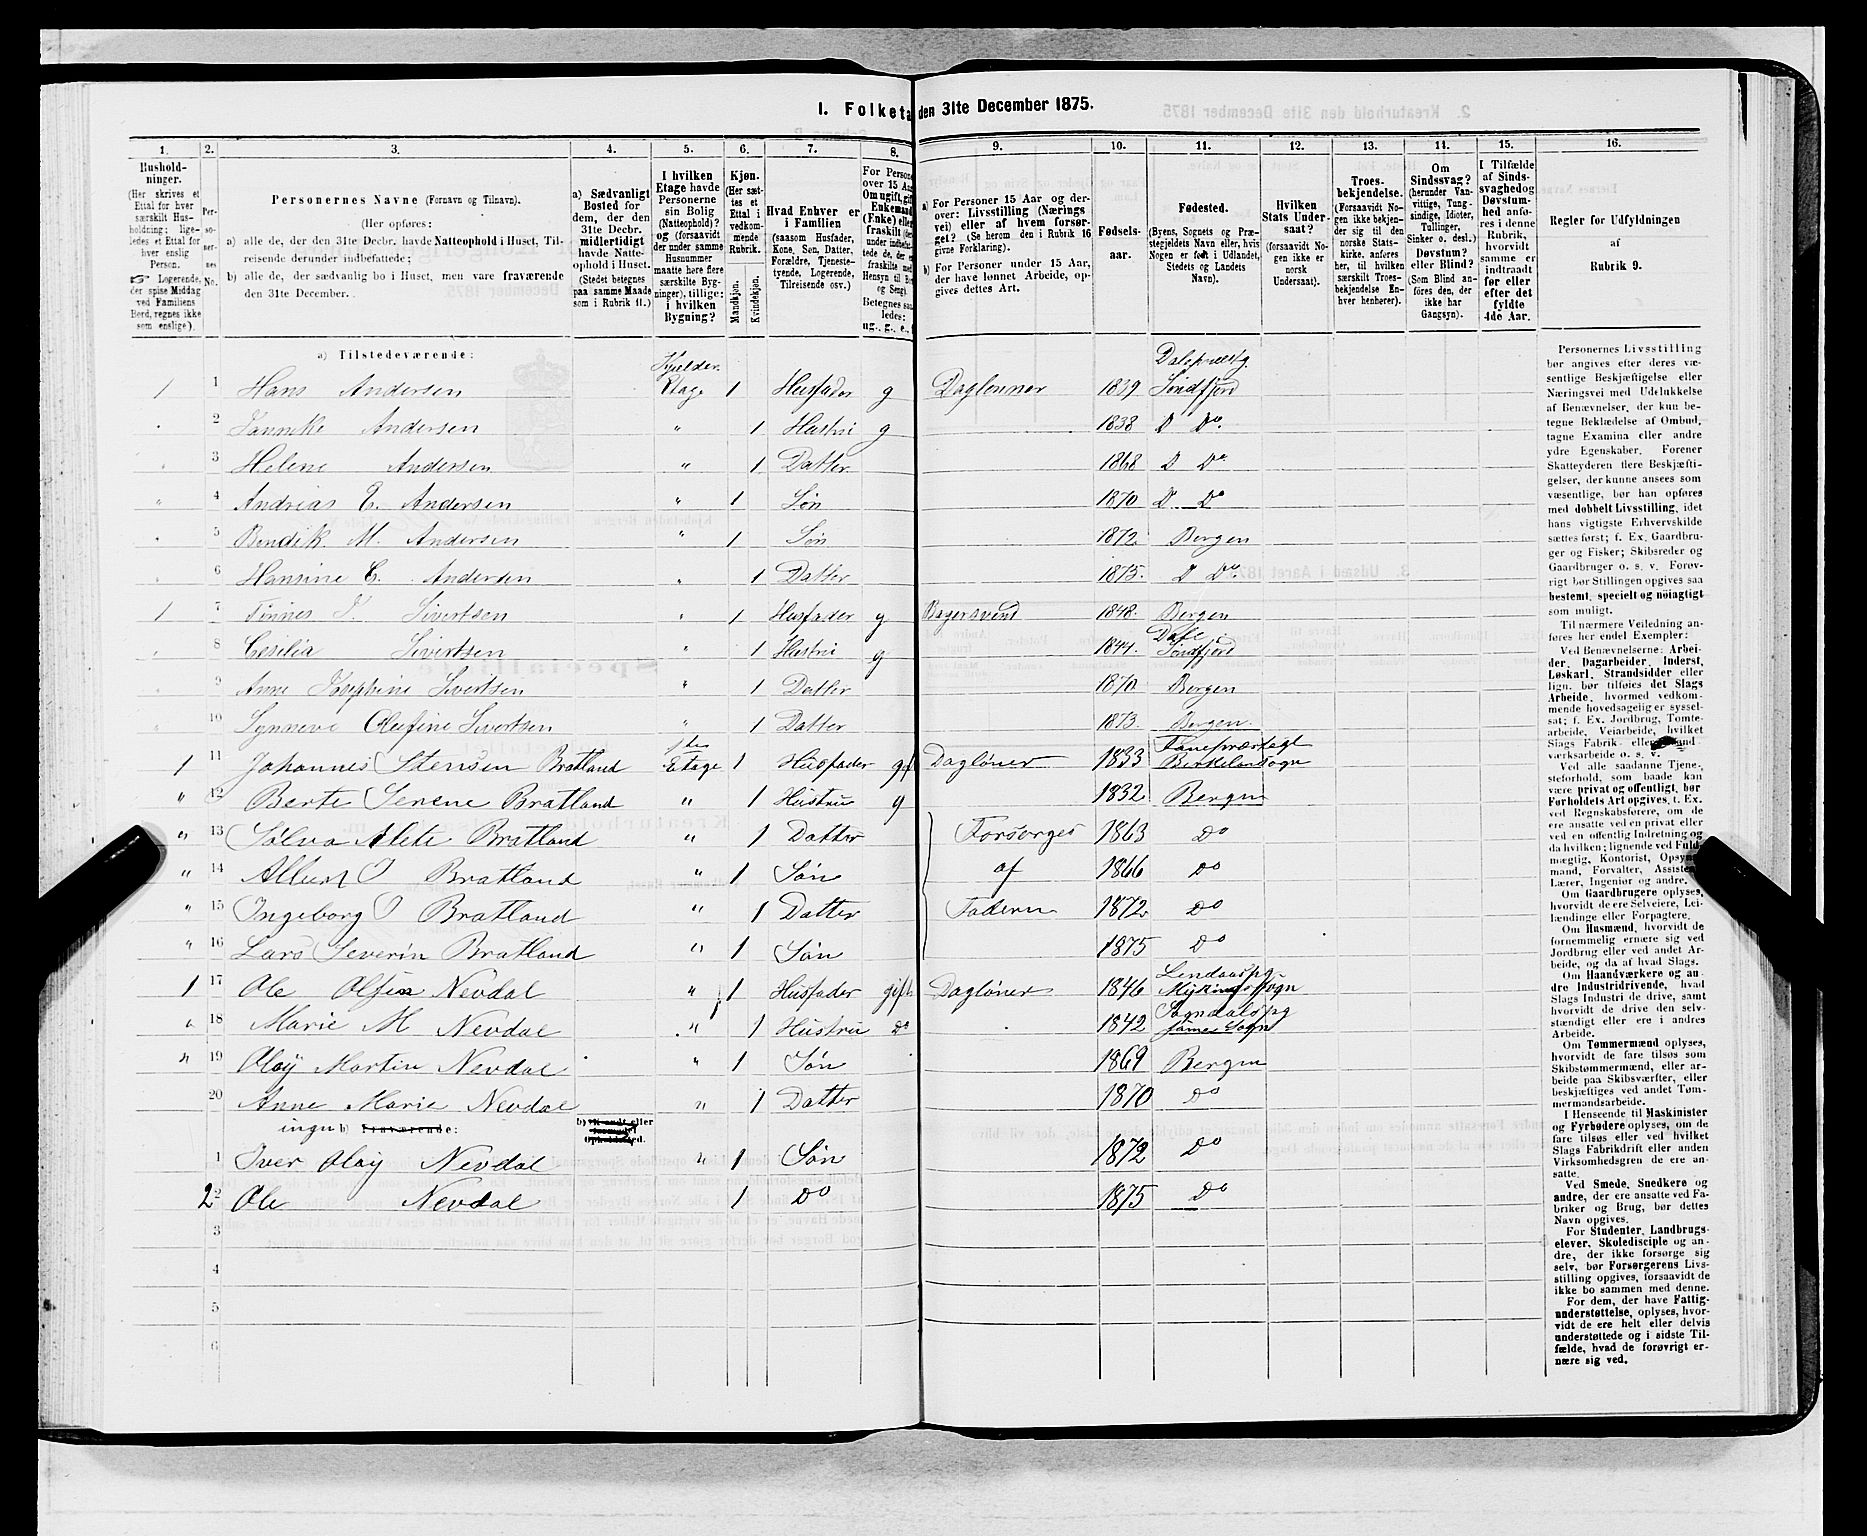 1. Folketæ den 31te December 1875.
1. 2. 3. 4. 5. 6. 7. 8. 9. 10. 11. 12. 13. 14. 15. 16.
Hushold-
ninger.
(Her skrives et
Ettal for hver
særskilt Hus-
holdning; lige-
ledes et Ettal for
hver enslig
Person.
☞ Logerende,
der spise Middag
ved Familiens
Bord, regnes ikke
som enslige).
Per-
so-
ner-
nes
No.
Personernes Navne (Fornavn og Tilnavn).
(Her opføres:
a) alle de, der den 31te Decbr. havde Natteophold i Huset, Til-
reisende derunder indbefattede;
b) alle de, der sædvanlig bo i Huset, men vare fraværende
den 31te December.)
a) Sædvanligt
Bosted for
dem, der den
31te Decbr.
midlertidigt
havde Natte-
ophold i Huset.
(Stedet betegnes
paa samme Maade
som i Rubrik 11.)
I hvilken
Etage havde
Personerne
sin Bolig
(Natteophold)?
og (forsaavidt
der under samme
Husnummer
maatte høre flere
særskilte Byg-
ninger), tillige:
i hvilken
Bygning?
Kjøn.
(Her sæt-
tes et
Ettal i
vedkom-
mende
Rubrik.
Mandkjøn.
Kvindekjøn.
Hvad Enhver er
i Familien
(saasom Husfader,
Kone, Søn, Datter,
Forældre, Tjeneste-
tyende, Logerende,
Tilreisende osv.)
For Persone
over 15 Aa
Om ugift, gif
Enkemand
(Enke) elle
fraskilt
under indbefat-
tede de, der er
fraskilte med
Hensyn til B
og Seng).
Betegnes saa
ledes:
ug., g., e., f
a) For Personer 15 Aar og der-
over: Livsstilling (Nærings
vei) eller af hvem forsør-
get? (Se herom den i Rubrik 16
givne Forklaring).
b) For Personer under 15 Aar,
der have lønnet Arbeide, op-
gives dettes Art.
Fødsels-
aar.
Fødested.
(Byens, Sognets og Præ-
stegjeldets Navn eller, hvis
Nogen er født i Udlandet,
Stedets og Landets
Navn).
Hvilken
Stats Under-
saat?
(forsaavidt No-
gen ikke er
norsk
Undersaat).
Troes-
bekjendelse.
(Forsaavidt No-
gen ikke bekjen-
der sig til den
norske Stats-
kirke, anføres
her, til hvilken
særskilt Troes-
bekjendelse En-
hver henhører).
Om
Sindssvag?
(herunder Van-
vittige, Tung-
sindige, Idioter,
Tullinger,
Sinker o. desl.)
Døvstum?
eller Blind?
(Som Blind an-
føres den, der
ikke har
Gangsyn).
I Tilfælde
af Sinds-
svaghed og
Døvstum-
hed anfø-
res i denne
Rubrik,
hvorvidt
samme er
indtraadt
før eller
efter det
fyldte
4de Aar.
Regler for Udfyldningen
af
Rubrik 9.
a) Tilstedeværende: Kjelder Dalspræstg.
1 1 Hans Andersen Etage 1 Husfader g Daglønner 1839 Søndfjord
" 2 Jannike Andersen " 1 Hustru g 1838 D Do.
" 3 Helene Andersen " 1 Datter 1868 D Do
" 4 Andreas E. Andersen " 1 Søn 1870 D Do
" 5 Bendik M. Andersen " 1 Søn 1872 Bergen
" 6 Hansine C. Andersen " 1 Datter 1875. D Do.
1 7 Tønnes J. Sivertsen " 1 Husfader g Bagersvend 1848. Bergen
" 8 Cesilia Sivertsen " 1 Hustru g 1844. Dale i Søndfjord
" 9 Anne Josephine Sivertsen " 1 Datter 1870. Bergen
" 10 Synneve Olufine Sivertsen " 1 Datter 1873. Bergen.
1 11 Johannes Stensen Bratland 1ste Etage 1 Husfader gft Dagløner 1833 Fanepræstegl Birkelansogn
" 12 Berte Serene Bratland " 1 Hustru g 1832 Bergen
" 13 Sølva Alete Bratland " 1 Datter Forsørges 1863 Do
" 14 Albert J Bratland " 1 Søn af 1866 Do
" 15 Ingeborg J Bratland " 1 Datter Faderen 1872 Do
" 16 Lars Severin Bratland " 1 Søn 1875 Do
1 17 Ole Olsen Nevdal " 1 Husfader gift Dagløner 1846 Lindaaspg Mykingsogn
" 18 Marie M Nevdal " 1 Hustru Do 1842 Sogndalspg same Sogn
" 19 Olay Martin Nevdal " 1 Søn 1869 Bergen
20 Anne Marie Nevdal " 1 Datter 1870 Do
ingen b) Fraværende: b) Kjendt eller formodet Opholdssted.
1 Iver Olay Nevdal " 1 Søn 1872 Do
2 2 Ole Nevdal 1 Do 1875 Do
3
4
5
6
Personernes Livsstilling
bør angives efter deres væ-
sentlige Beskjæftigelse eller
Næringsvei med Udelukkelse
af Benævnelser, der kun be-
tegne Beklædelse af Ombud,
tagne Examina eller andre
ydre Egenskaber. Forener
Skatteyderen flere Beskjæfti-
gelser, der kunne ansees som
væsentlige, bør han opføres
med dobbelt Livsstilling, idet
hans vigtigste Erhvervskilde
sættes først; f. Ex. Gaardbru-
ger og Fisker; Skibsreder og
Gaardbruger o. s. v. Forøv-
rigt bør Stillingen opgives saa
bestemt, specielt og nöiagtigt
som muligt.
Til nærmere Veiledning an-
føres her endel Exempler:
Ved Benævnelserne: Arbei-
der, Dagarbeider, Inderst,
Løskarl, Strandsidder eller
lign. bør tilføies det Slags
Arbeide, hvormed vedkom-
mende hovedsagelig er syssel-
sat; f. Ex. Jordbrug, Tomte-
arbeide, Veiarbeide, hvilket
Slags Fabrik- eller Haand-
værksarbeide o. s. v.
Ved alle saadanne Tjene-
steforhold, som baade kan
være privat og offentligt, bør
Forholdets Art opgives, t. Ex.
ved Regnskabsførere, om de
ere ansatte ved en privat eller
ved en offentlig Indretning og
da hvilken; lignende ved Fuld-
mægtig, Kontorist, Opsyns-
mand, Forvalter, Assistent,
Lærer, Ingeniør og andre.
Om Gaardbrugere oplyses,
hvorvidt de ere Selveiere, Lei-
lændinge eller Forpagtere.
Om Husmænd, hvorvidt de
fornemmelig ernære sig ved
Jordbrug eller ved andet Ar-
beide, og da af hvad Slags.
Om Haandværkere og an-
dre Industridrivende, hvad
Slags Industri de drive, samt
hvorvidt de drive den selv-
stændigt eller ere i andres
Arbeide.
Om Tømmermænd oplyses,
hvorvidt de fare tilsøs som
Skibstømmermænd, eller ar-
beide paa Skibsværfter, eller
beskjæftiges ved andet Tøm-
mermandsarbeide.
I Henseende til Maskinister
og Fyrbødere oplyses, om de
fare tilsøs eller ved hvilket
Slags Fabrikdrift eller anden
Virksomhedsgren de ere an-
satte.
Ved Smede, Snedkere og
andre, der ere ansatte ved Fa-
briker og Brug, bør dettes
Navn opgives.
For Studenter, Landbrugs-
elever, Skoledisciple og an-
dre, der ikke forsørge sig
selv, bør Forsørgerens Livs-
stilling opgives, forsaavidt de
ikke bo sammen med denne.
For dem, der have Fattig-
understøttelse, oplyses, hvor-
vidt de ere helt eller delvis
understøttede og i sidste Til-
fælde, hvad de forøvrigt er-
nære sig ved.